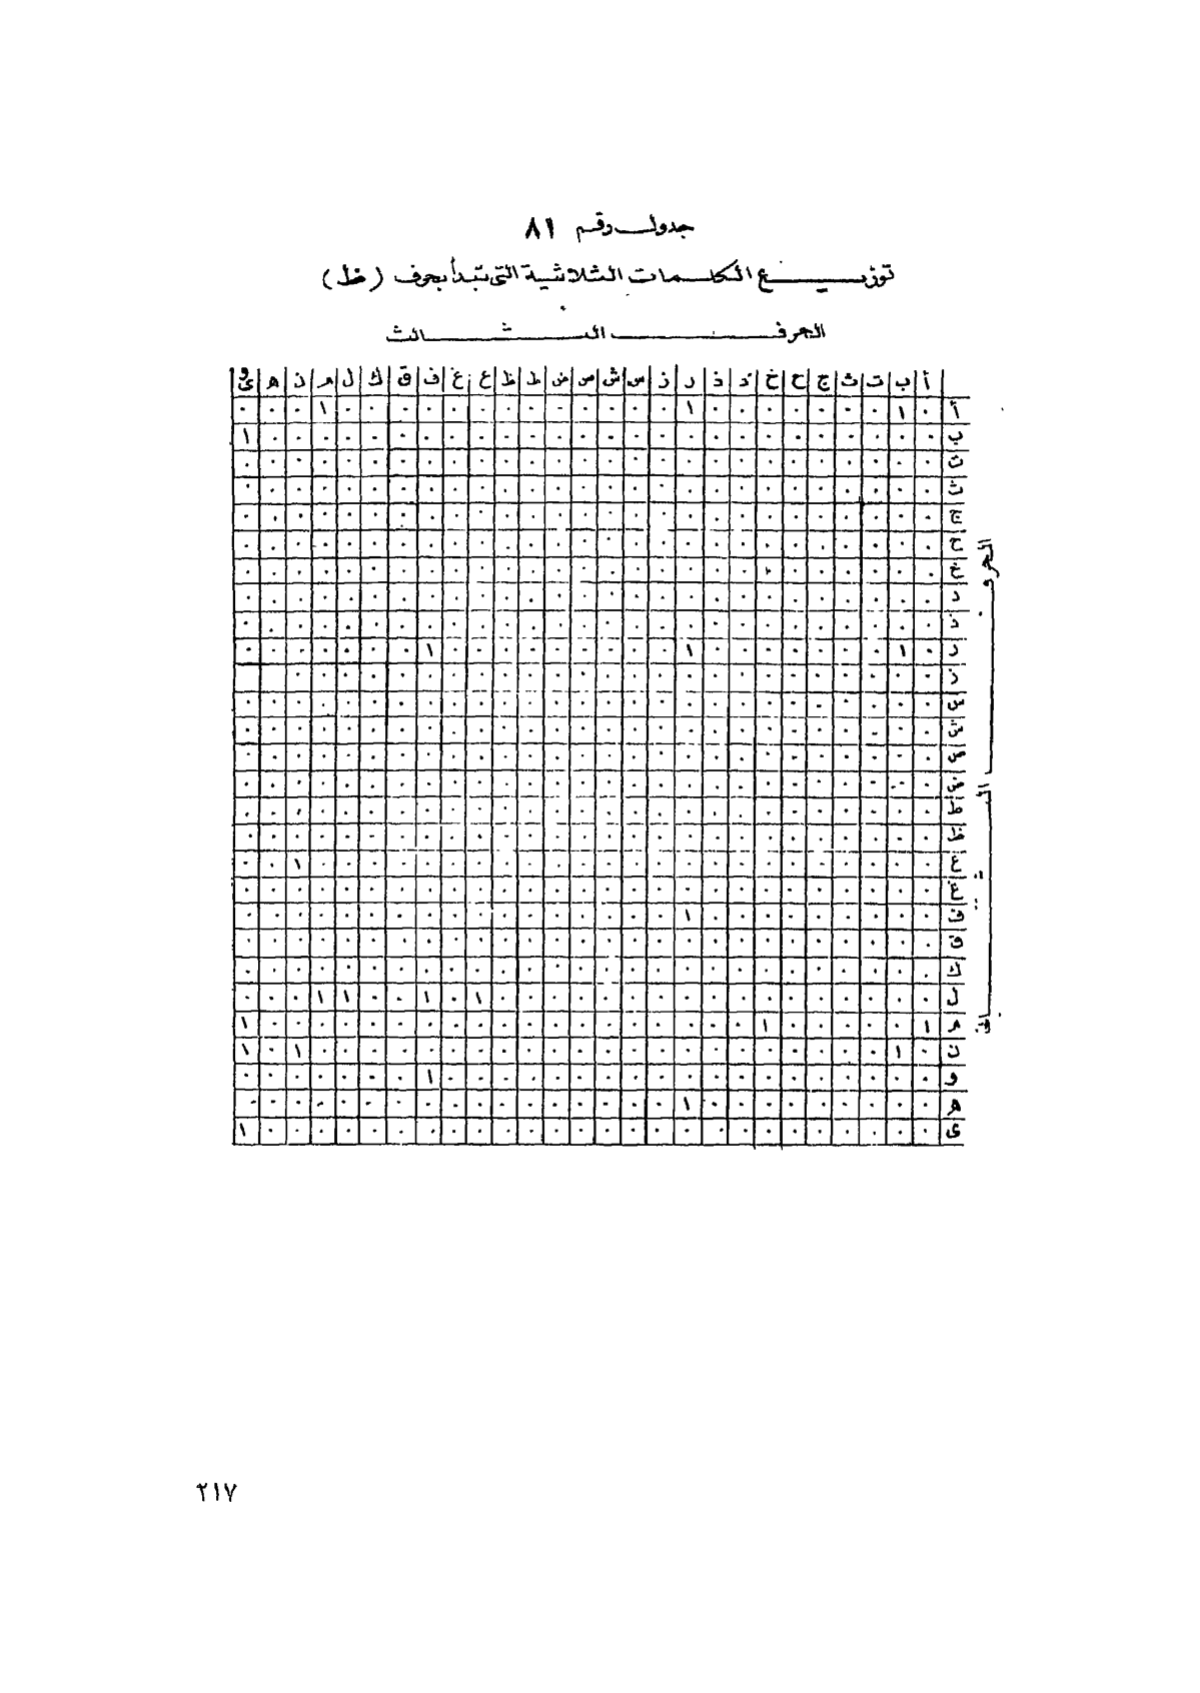 جدول رقم ٨١
توزيع الكلمات الثلاثية التى تبدأ بحرف (ظ)
الحرف الثالث
أ ب ت ث ج ح خ د ذ ر ز س ش ص ض ط ظ ع غ ف ق ك ل م ن ه وى
أ ٠ ١ ٠ ٠ ٠ ٠ ٠ ٠ ٠ ١ ٠ ٠ ٠ ٠ ٠ ٠ ٠ ٠ ٠ ٠ ٠ ٠ ٠ ١ ٠ ٠ ٠
ب ٠ ٠ ٠ ٠ ٠ ٠ ٠ ٠ ٠ ٠ ٠ ٠ ٠ ٠ ٠ ٠ ٠ ٠ ٠ ٠ ٠ ٠ ٠ ٠ ٠ ٠ ١
ت ٠ ٠ ٠ ٠ ٠ ٠ ٠ ٠ ٠ ٠ ٠ ٠ ٠ ٠ ٠ ٠ ٠ ٠ ٠ ٠ ٠ ٠ ٠ ٠ ٠ ٠ ٠
ث ٠ ٠ ٠ ٠ ٠ ٠ ٠ ٠ ٠ ٠ ٠ ٠ ٠ ٠ ٠ ٠ ٠ ٠ ٠ ٠ ٠ ٠ ٠ ٠ ٠ ٠ ٠
ج ٠ ٠ ٠ ٠ ٠ ٠ ٠ ٠ ٠ ٠ ٠ ٠ ٠ ٠ ٠ ٠ ٠ ٠ ٠ ٠ ٠ ٠ ٠ ٠ ٠ ٠ ٠
ح ٠ ٠ ٠ ٠ ٠ ٠ ٠ ٠ ٠ ٠ ٠ ٠ ٠ ٠ ٠ ٠ ٠ ٠ ٠ ٠ ٠ ٠ ٠ ٠ ٠ ٠ ٠
خ ٠ ٠ ٠ ٠ ٠ ٠ ٠ ٠ ٠ ٠ ٠ ٠ ٠ ٠ ٠ ٠ ٠ ٠ ٠ ٠ ٠ ٠ ٠ ٠ ٠ ٠ ٠
د ٠ ٠ ٠ ٠ ٠ ٠ ٠ ٠ ٠ ٠ ٠ ٠ ٠ ٠ ٠ ٠ ٠ ٠ ٠ ٠ ٠ ٠ ٠ ٠ ٠ ٠ ٠
ذ ٠ ٠ ٠ ٠ ٠ ٠ ٠ ٠ ٠ ٠ ٠ ٠ ٠ ٠ ٠ ٠ ٠ ٠ ٠ ٠ ٠ ٠ ٠ ٠ ٠ ٠ ٠
ر ٠ ١ ٠ ٠ ٠ ٠ ٠ ٠ ٠ ١ ٠ ٠ ٠ ٠ ٠ ٠ ٠ ٠ ٠ ١ ٠ ٠ ٠ ٠ ٠ ٠ ٠
ز ٠ ٠ ٠ ٠ ٠ ٠ ٠ ٠ ٠ ٠ ٠ ٠ ٠ ٠ ٠ ٠ ٠ ٠ ٠ ٠ ٠ ٠ ٠ ٠ ٠
س ٠ ٠ ٠ ٠ ٠ ٠ ٠ ٠ ٠ ٠ ٠ ٠ ٠ ٠ ٠ ٠ ٠ ٠ ٠ ٠ ٠ ٠ ٠ ٠ ٠ ٠ ٠
ش ٠ ٠ ٠ ٠ ٠ ٠ ٠ ٠ ٠ ٠ ٠ ٠ ٠ ٠ ٠ ٠ ٠ ٠ ٠ ٠ ٠ ٠ ٠ ٠ ٠ ٠ ٠
ص ٠ ٠ ٠ ٠ ٠ ٠ ٠ ٠ ٠ ٠ ٠ ٠ ٠ ٠ ٠ ٠ ٠ ٠ ٠ ٠ ٠ ٠ ٠ ٠ ٠ ٠ ٠
ض ٠ ٠ ٠ ٠ ٠ ٠ ٠ ٠ ٠ ٠ ٠ ٠ ٠ ٠ ٠ ٠ ٠ ٠ ٠ ٠ ٠ ٠ ٠ ٠ ٠ ٠ ٠
ط ٠ ٠ ٠ ٠ ٠ ٠ ٠ ٠ ٠ ٠ ٠ ٠ ٠ ٠ ٠ ٠ ٠ ٠ ٠ ٠ ٠ ٠ ٠ ٠ ٠ ٠ ٠
ظ ٠ ٠ ٠ ٠ ٠ ٠ ٠ ٠ ٠ ٠ ٠ ٠ ٠ ٠ ٠ ٠ ٠ ٠ ٠ ٠ ٠ ٠ ٠ ٠ ٠ ٠ ٠
ع ٠ ٠ ٠ ٠ ٠ ٠ ٠ ٠ ٠ ٠ ٠ ٠ ٠ ٠ ٠ ٠ ٠ ٠ ٠ ٠ ٠ ٠ ٠ ٠ ١ ٠ ٠
غ ٠ ٠ ٠ ٠ ٠ ٠ ٠ ٠ ٠ ٠ ٠ ٠ ٠ ٠ ٠ ٠ ٠ ٠ ٠ ٠ ٠ ٠ ٠ ٠ ٠ ٠ ٠
ف ٠ ٠ ٠ ٠ ٠ ٠ ٠ ٠ ٠ ١ ٠ ٠ ٠ ٠ ٠ ٠ ٠ ٠ ٠ ٠ ٠ ٠ ٠ ٠ ٠ ٠ ٠
ق ٠ ٠ ٠ ٠ ٠ ٠ ٠ ٠ ٠ ٠ ٠ ٠ ٠ ٠ ٠ ٠ ٠ ٠ ٠ ٠ ٠ ٠ ٠ ٠ ٠ ٠ ٠
ك ٠ ٠ ٠ ٠ ٠ ٠ ٠ ٠ ٠ ٠ ٠ ٠ ٠ ٠ ٠ ٠ ٠ ٠ ٠ ٠ ٠ ٠ ٠ ٠ ٠ ٠ ٠
ل ٠ ٠ ٠ ٠ ٠ ٠ ٠ ٠ ٠ ٠ ٠ ٠ ٠ ٠ ٠ ٠ ٠ ١ ٠ ١ ٠ ٠ ١ ١ ٠ ٠ ٠
م ١ ٠ ٠ ٠ ٠ ٠ ١ ٠ ٠ ٠ ٠ ٠ ٠ ٠ ٠ ٠ ٠ ٠ ٠ ٠ ٠ ٠ ٠ ٠ ٠ ٠ ١
ن ٠ ١ ٠ ٠ ٠ ٠ ٠ ٠ ٠ ٠ ٠ ٠ ٠ ٠ ٠ ٠ ٠ ٠ ٠ ٠ ٠ ٠ ٠ ٠ ١ ٠ ١
و ٠ ٠ ٠ ٠ ٠ ٠ ٠ ٠ ٠ ٠ ٠ ٠ ٠ ٠ ٠ ٠ ٠ ٠ ٠ ١ ٠ ٠ ٠ ٠ ٠ ٠ ٠
ه ٠ ٠ ٠ ٠ ٠ ٠ ٠ ٠ ٠ ١ ٠ ٠ ٠ ٠ ٠ ٠ ٠ ٠ ٠ ٠ ٠ ٠ ٠ ٠ ٠ ٠ ٠
ى ٠ ٠ ٠ ٠ ٠ ٠ ٠ ٠ ٠ ٠ ٠ ٠ ٠ ٠ ٠ ٠ ٠ ٠ ٠ ٠ ٠ ٠ ٠ ٠ ٠ ٠ ١
الحرف الثانى
٢١٧